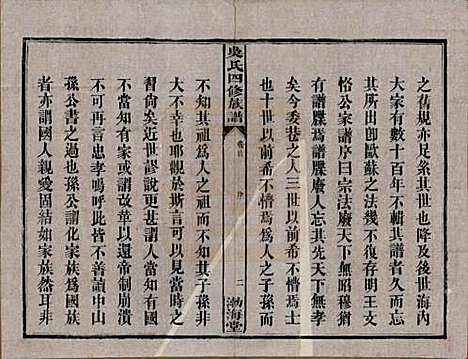 之舊規亦足糸其世也降及後世海內
大家有數十百年不輯其譜者久而忘
其所出卽歐蘇之法幾不復存明王文
恪公家譜序曰宗法廢天下無昭穆猶
有譜牒焉譜牒廢人忘其祖可不懼乎
矣今委巷之人三世以前希不懵焉士
也十世以前希不懵焉為人之子孫而
吳氏四修族譜
卷首
序
二
渤海堂
不知其祖為人之祖不知其子孫非
大不幸也耶觀於斯言可以見當時之
習尚矣近世謬說甚且謂人當知有國
不當知有家或謂改革以還帝制崩潰
不可再言孝嗚呼此皆不善讀中山
孫公書之過也孫公謂化家族為國族
者亦謂國人親愛固結如家族然耳非